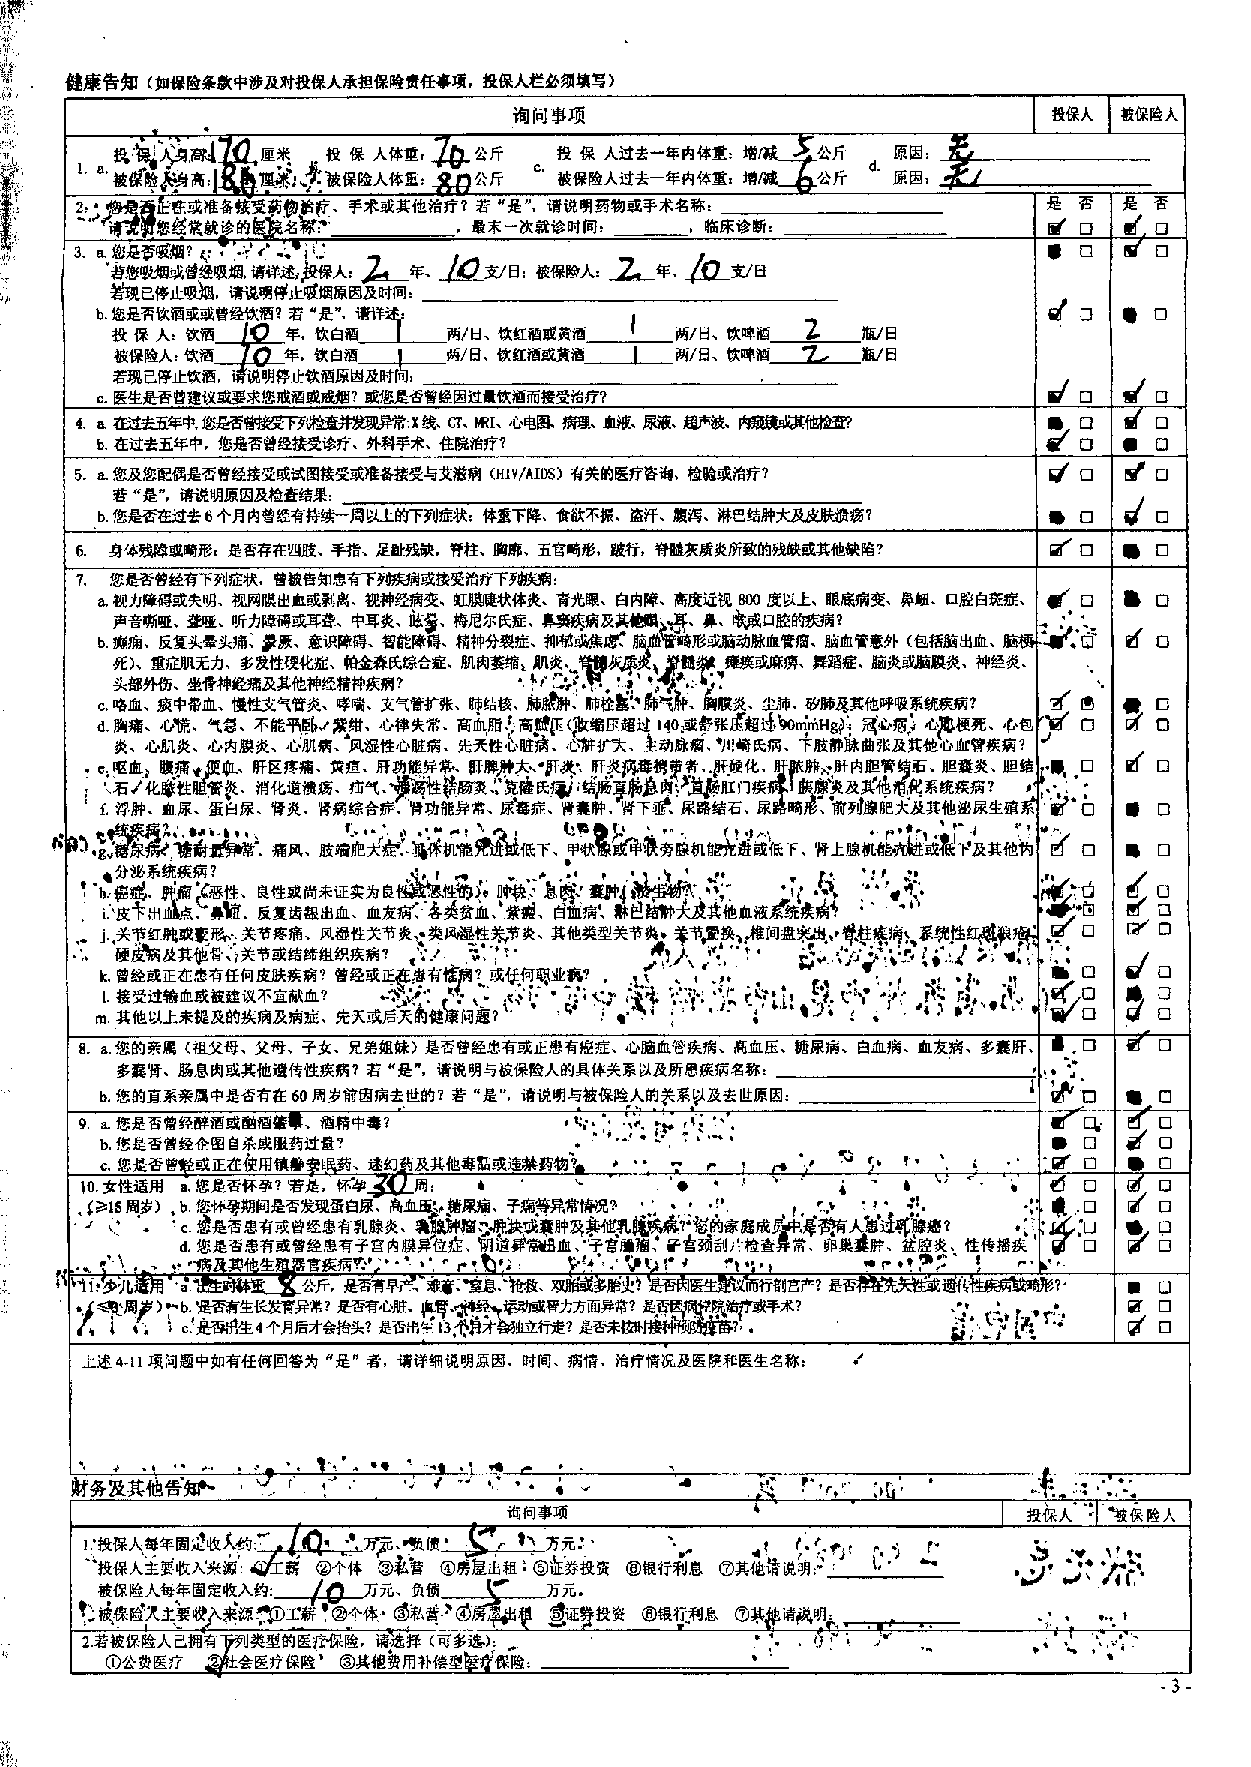 健康告知（如保险条款中涉及对投保人承担保险责任事项，投保人栏必须填写）
询问事项 投保人 被保险人
1. a. 投 保 人身高：170厘米 b. 投 保 人体重：70公斤 c. 投 保 人过去一年内体重：增/减 5 公斤 d. 原因：无
被保险人身高：180厘米 被保险人体重：80公斤 被保险人过去一年内体重：增/减 6 公斤 原因：无
2. 您是否正在或准备接受药物治疗、手术或其他治疗？若“是”，请说明药物或手术名称： 是 否 是 否
请说明您经常就诊的医院名称： ，最末一次就诊时间： ，临床诊断：
3. a. 您是否吸烟？
若您吸烟或曾经吸烟，请详述，投保人：2 年、10支/日；被保险人：2 年、10支/日
若现已停止吸烟，请说明停止吸烟原因及时间：
b. 您是否饮酒或或曾经饮酒？若“是”，请详述：
投 保 人：饮酒 10 年，饮白酒 1 两/日、饮红酒或黄酒 1 两/日、饮啤酒 2 瓶/日
被保险人：饮酒 10 年，饮白酒 1 两/日、饮红酒或黄酒 1 两/日、饮啤酒 2 瓶/日
若现已停止饮酒，请说明停止饮酒原因及时间：
c. 医生是否曾建议或要求您戒酒或戒烟？或您是否曾经因过量饮酒而接受治疗？
4. a. 在过去五年中，您是否曾接受下列检查并发现异常：X线、CT、MRI、心电图、病理、血液、尿液、超声波、内窥镜或其他检查？
b. 在过去五年中，您是否曾经接受诊疗、外科手术、住院治疗？
5. a. 您及您配偶是否曾经接受或试图接受或准备接受与艾滋病（HIV/AIDS）有关的医疗咨询、检验或治疗？
若“是”，请说明原因及检查结果：
b. 您是否在过去6个月内曾经有持续一周以上的下列症状：体重下降、食欲不振、盗汗、腹泻、淋巴结肿大及皮肤溃疡？
6. 身体残障或畸形：是否存在四肢、手指、足趾残缺，脊柱、胸廓、五官畸形，跛行，脊髓灰质炎所致的残缺或其他缺陷？
7. 您是否曾经有下列症状，曾被告知患有下列疾病或接受治疗下列疾病：
a. 视力障碍或失明、视网膜出血或剥离、视神经病变、虹膜睫状体炎、青光眼、白内障、高度近视800度以上、眼底病变、鼻衄、口腔白斑症、
声音嘶哑、聋哑、听力障碍或耳聋、中耳炎、眩晕、梅尼尔氏症、鼻窦疾病及其他眼、耳、鼻、喉或口腔的疾病？
b. 癫痫、反复头晕头痛、晕厥、意识障碍、智能障碍、精神分裂症、抑郁或焦虑、脑血管畸形或脑动脉血管瘤、脑血管意外（包括脑出血、脑梗
死）、重症肌无力、多发性硬化症、帕金森氏综合症、肌肉萎缩、肌炎、脊髓灰质炎、脊髓炎、瘫痪或麻痹、舞蹈症、脑炎或脑膜炎、神经炎、
头部外伤、坐骨神经痛及其他神经精神疾病？
c. 咯血、痰中带血、慢性支气管炎、哮喘、支气管扩张、肺结核、肺脓肿、肺栓塞、肺气肿、胸膜炎、尘肺、矽肺及其他呼吸系统疾病？
d. 胸痛、心慌、气急、不能平卧、紫绀、心律失常、高血脂、高血压（收缩压超过140或舒张压超过90mmHg）；冠心病、心肌梗死、心包
炎、心肌炎、心内膜炎、心肌病、风湿性心脏病、先天性心脏病、心脏扩大、主动脉瘤、川崎氏病、下肢静脉曲张及其他心血管疾病？
e. 呕血、腹痛、便血、肝区疼痛、黄疸、肝功能异常、肝脾肿大、肝炎、肝炎病毒携带者、肝硬化、肝脓肿、肝内胆管结石、胆囊炎、胆结
石、化脓性胆管炎、消化道溃疡、疝气、溃疡性结肠炎、克隆氏病、结肠直肠息肉、直肠肛门疾病、胰腺炎及其他消化系统疾病？
f. 浮肿、血尿、蛋白尿、肾炎、肾病综合症、肾功能异常、尿毒症、肾囊肿、肾下垂、尿路结石、尿路畸形、前列腺肥大及其他泌尿生殖系
统疾病？
g. 糖尿病、糖耐量异常、痛风、肢端肥大症、垂体机能亢进或低下、甲状腺或甲状旁腺机能亢进或低下、肾上腺机能亢进或低下及其他内
分泌系统疾病？
h. 癌症、肿瘤（恶性、良性或尚未证实为良性或恶性的）、肿块、息肉、囊肿、赘生物？
i. 皮下出血点、鼻衄、反复齿龈出血、血友病、各类贫血、紫癜、白血病、淋巴结肿大及其他血液系统疾病？
j. 关节红肿或变形、关节疼痛、风湿性关节炎、类风湿性关节炎、其他类型关节炎、关节置换、椎间盘突出、脊柱疾病、系统性红斑狼疮、
硬皮病及其他骨、关节或结缔组织疾病？
k. 曾经或正在患有任何皮肤疾病？曾经或正在患有性病？或任何职业病？
l. 接受过输血或被建议不宜献血？
m. 其他以上未提及的疾病及病症、先天或后天的健康问题？
8. a. 您的亲属（祖父母、父母、子女、兄弟姐妹）是否曾经患有或正患有癌症、心脑血管疾病、高血压、糖尿病、白血病、血友病、多囊肝、
多囊肾、肠息肉或其他遗传性疾病？若“是”，请说明与被保险人的具体关系以及所患疾病名称：
b. 您的直系亲属中是否有在60周岁前因病去世的？若“是”，请说明与被保险人的关系以及去世原因：
9. a. 您是否曾经醉酒或酗酒、酒精中毒？
b. 您是否曾经企图自杀或服药过量？
c. 您是否曾经或正在使用镇静安眠药、迷幻药及其他毒品或违禁药物？
10. 女性适用 a. 您是否怀孕？若是，怀孕30周；
（≥18周岁） b. 您怀孕期间是否发现蛋白尿、高血压、糖尿病、子痫等异常情况？
c. 您是否患有或曾经患有乳腺炎、乳腺肿瘤、肿块或囊肿及其他乳腺疾病？您的家庭成员中是否有人患过乳腺癌？
d. 您是否患有或曾经患有子宫内膜异位症、阴道异常出血、子宫肿瘤、子宫颈刮片检查异常、卵巢囊肿、盆腔炎、性传播疾
病及其他生殖器官疾病？
11. 少儿适用 a. 出生时体重 8 公斤，是否有早产、难产、窒息、抢救、双胎或多胎史？是否因医生建议而行剖宫产？是否存在先天性或遗传性疾病或畸形？
周岁） b. 是否有生长发育异常？是否有心脏、血管、神经、运动或智力方面异常？是否因病住院治疗或手术？
c. 是否出生4个月后才会抬头？是否出生13个月才会独立行走？是否未按时接种预防疫苗？
上述4-11项问题中如有任何回答为“是”者，请详细说明原因、时间、病情、治疗情况及医院和医生名称：
财务及其他告知
询问事项 投保人 被保险人
1. 投保人每年固定收入约： 10 万元、负债 5 万元；
投保人主要收入来源：①工薪 ②个体 ③私营 ④房屋出租 ⑤证券投资 ⑥银行利息 ⑦其他请说明：
被保险人每年固定收入约： 10 万元、负债 5 万元。
被保险人主要收入来源：①工薪 ②个体 ③私营 ④房屋出租 ⑤证券投资 ⑥银行利息 ⑦其他请说明：
2.若被保险人已拥有下列类型的医疗保险，请选择（可多选）：
①公费医疗 ②社会医疗保险 ③其他费用补偿型医疗保险：
- 3 -